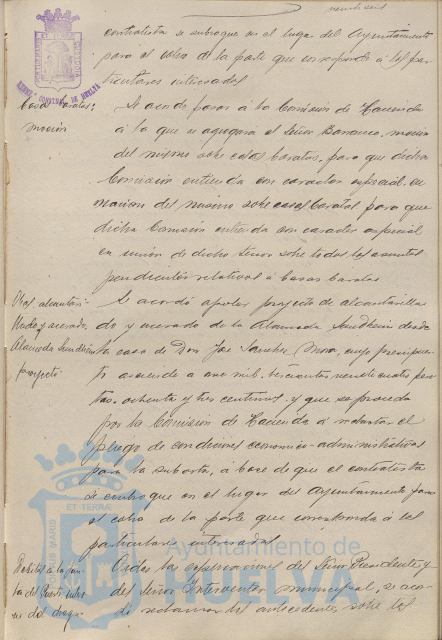 contratista se subrogue en el lugar del Ayuntamiento
para el cobro de la parte que corresponda á los par-
ticulares interesados
Casas baratas:
moción
Se acordó pasar á la Comisión de Hacienda
á la que se agregará el Señor Barranco, moción
del mismo sobre casas baratas, para que dicha
Comisión entienda con caracter especial en
mocion del mismo sobre casas baratas para que
dicha Comisión entienda con caracter especial
en union de dicho Señor sobre todos los asuntos
pendientes relativos á casas baratas
Obras alcantari-
llado y acerado
Alameda Sundheim
proyecto
Se acordó aprobar proyecto de alcantarilla-
do y acerado de la Alameda Sundheim desde
la casa de Don José Sanchez Mora, cuyo presupues-
to asciende á mil, pese-
tas, ochenta y tres centimos, y que se proceda
por la Comisión de Hacienda á redactar el
pliego de condiciones economico-administrativas
para la subasta, á base de que el contratista
se subrogue en el lugar del Ayuntamiento para
el cobro de la parte que corresponda á los
particulares interesados
á la Jun-
ta del Puerto
del
Oidas las explicaciones del Señor Presidente y
del Señor Interventor municipal, se acor-
dó los antecedentes sobre los
ET TERRAE
Ayuntamiento de
HUELVA